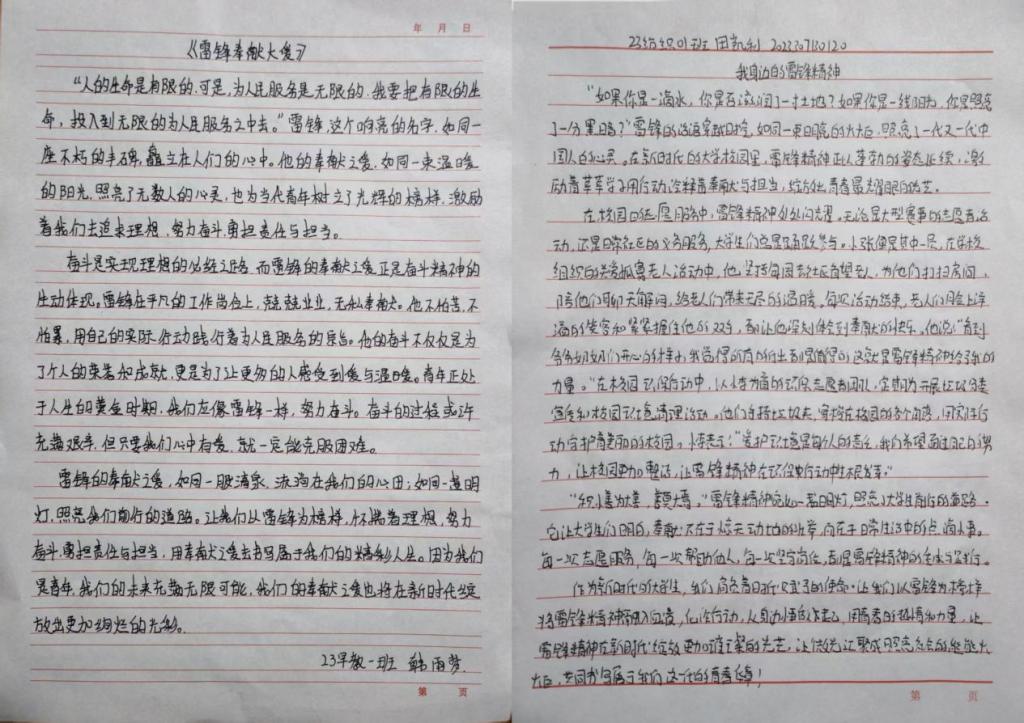 年 月 日
《雷锋奉献大爱》
“人的生命是有限的,可是,为人民服务是无限的,我要把有限的生
命,投入到无限的为人民服务之中去。”雷锋,这个响亮的名字,如同一
座不朽的丰碑,矗立在人们的心中。他的奉献之爱,如同一束温暖
的阳光,照亮了无数人的心灵,也为当代青年树立了光辉的榜样,激励
着我们去追求理想,努力奋斗,勇担责任与担当。
奋斗是实现理想的必经之路,而雷锋的奉献之爱正是奋斗精神的
生动体现,雷锋在平凡的工作岗位上,兢兢业业,无私奉献。他不怕苦,不
怕累,用自己的实际行动践行着为人民服务的宗旨。他的奋斗不仅仅是为
了个人的荣誉和成就,更是为了让更多的人感受到爱与温暖。青年正处
于人生的黄金时期,我们应像雷锋一样,努力奋斗。奋斗的过程或许
充满艰辛,但只要我们心中有爱,就一定能克服困难。
雷锋的奉献之爱,如同一股清泉,流淌在我们的心田;如同一盏明
灯,照亮我们前行的道路。让我们以雷锋为榜样,怀揣着理想,努力
奋斗,勇担责任与担当,用奉献之爱去书写属于我们的精彩人生。因为我们
是青年,我们的未来充满无限可能,我们的奉献之爱也将在新时代绽
放出更加绚烂的光彩。
23早教一班 韩雨梦
第 页
23纺织01班 田凯利 202307130120
我身边的雷锋精神
“如果你是一滴水,你是否滋润了一寸土地?如果你是一线阳光,你是否照亮
了一分黑暗?”雷锋的话语穿越时空,如同一束明亮的火炬,照亮了一代又一代中
国人的心灵。在新时代的大学校园里,雷锋精神正以蓬勃的姿态延续,激
励着莘莘学子用行动诠释着奉献与担当,绽放出青春最耀眼的光芒。
在校园的志愿服务中,雷锋精神处处闪耀,无论是大型赛事的志愿者活
动,还是日常社区的义务服务,大学生们总是积极参与。小张便是其中一员,在学校
组织的关爱孤寡老人活动中,他坚持每周去社区看望老人,为他们打扫房间,
陪着他们聊天解闷,给老人们带来无尽的温暖。每次活动结束,老人们脸上洋
溢的笑容和紧紧握住他的双手,都让他深刻体会到奉献的快乐。他说:“看到
爷爷奶奶们开心的样子,我觉得所有的付出都是值得的,这就是雷锋精神给予我的
力量。”在校园环保行动中,以小李为首的环保志愿者团队,定期开展垃圾分类
宣传和校园环境清理活动。他们手持垃圾夹,穿梭在校园的各个角落,用实际行
动守护着美丽的校园。小李表示:“爱护环境是每个人的责任,我们希望通过自己的努
力,让校园更加整洁,让雷锋精神在环保行动中生根发芽。”
“积小善为大善,善莫大焉。”雷锋精神宛如一盏明灯,照亮大学生前行的道路。
它让大学生们明白,奉献不在于惊天动地的壮举,而在于日常生活中的点滴小事。
每一次志愿服务,每一次帮助他人,每一次坚守岗位,都是雷锋精神的生动践行。
作为新时代的大学生,我们肩负着时代赋予的使命。让我们以雷锋为榜样
将雷锋精神融入血液,化为行动,从身边小事做起,用青春的热情和力量,让
雷锋精神在新时代绽放更加璀璨的光芒,让
火炬,共同书写属于我们这一代的青春华章!
第 页